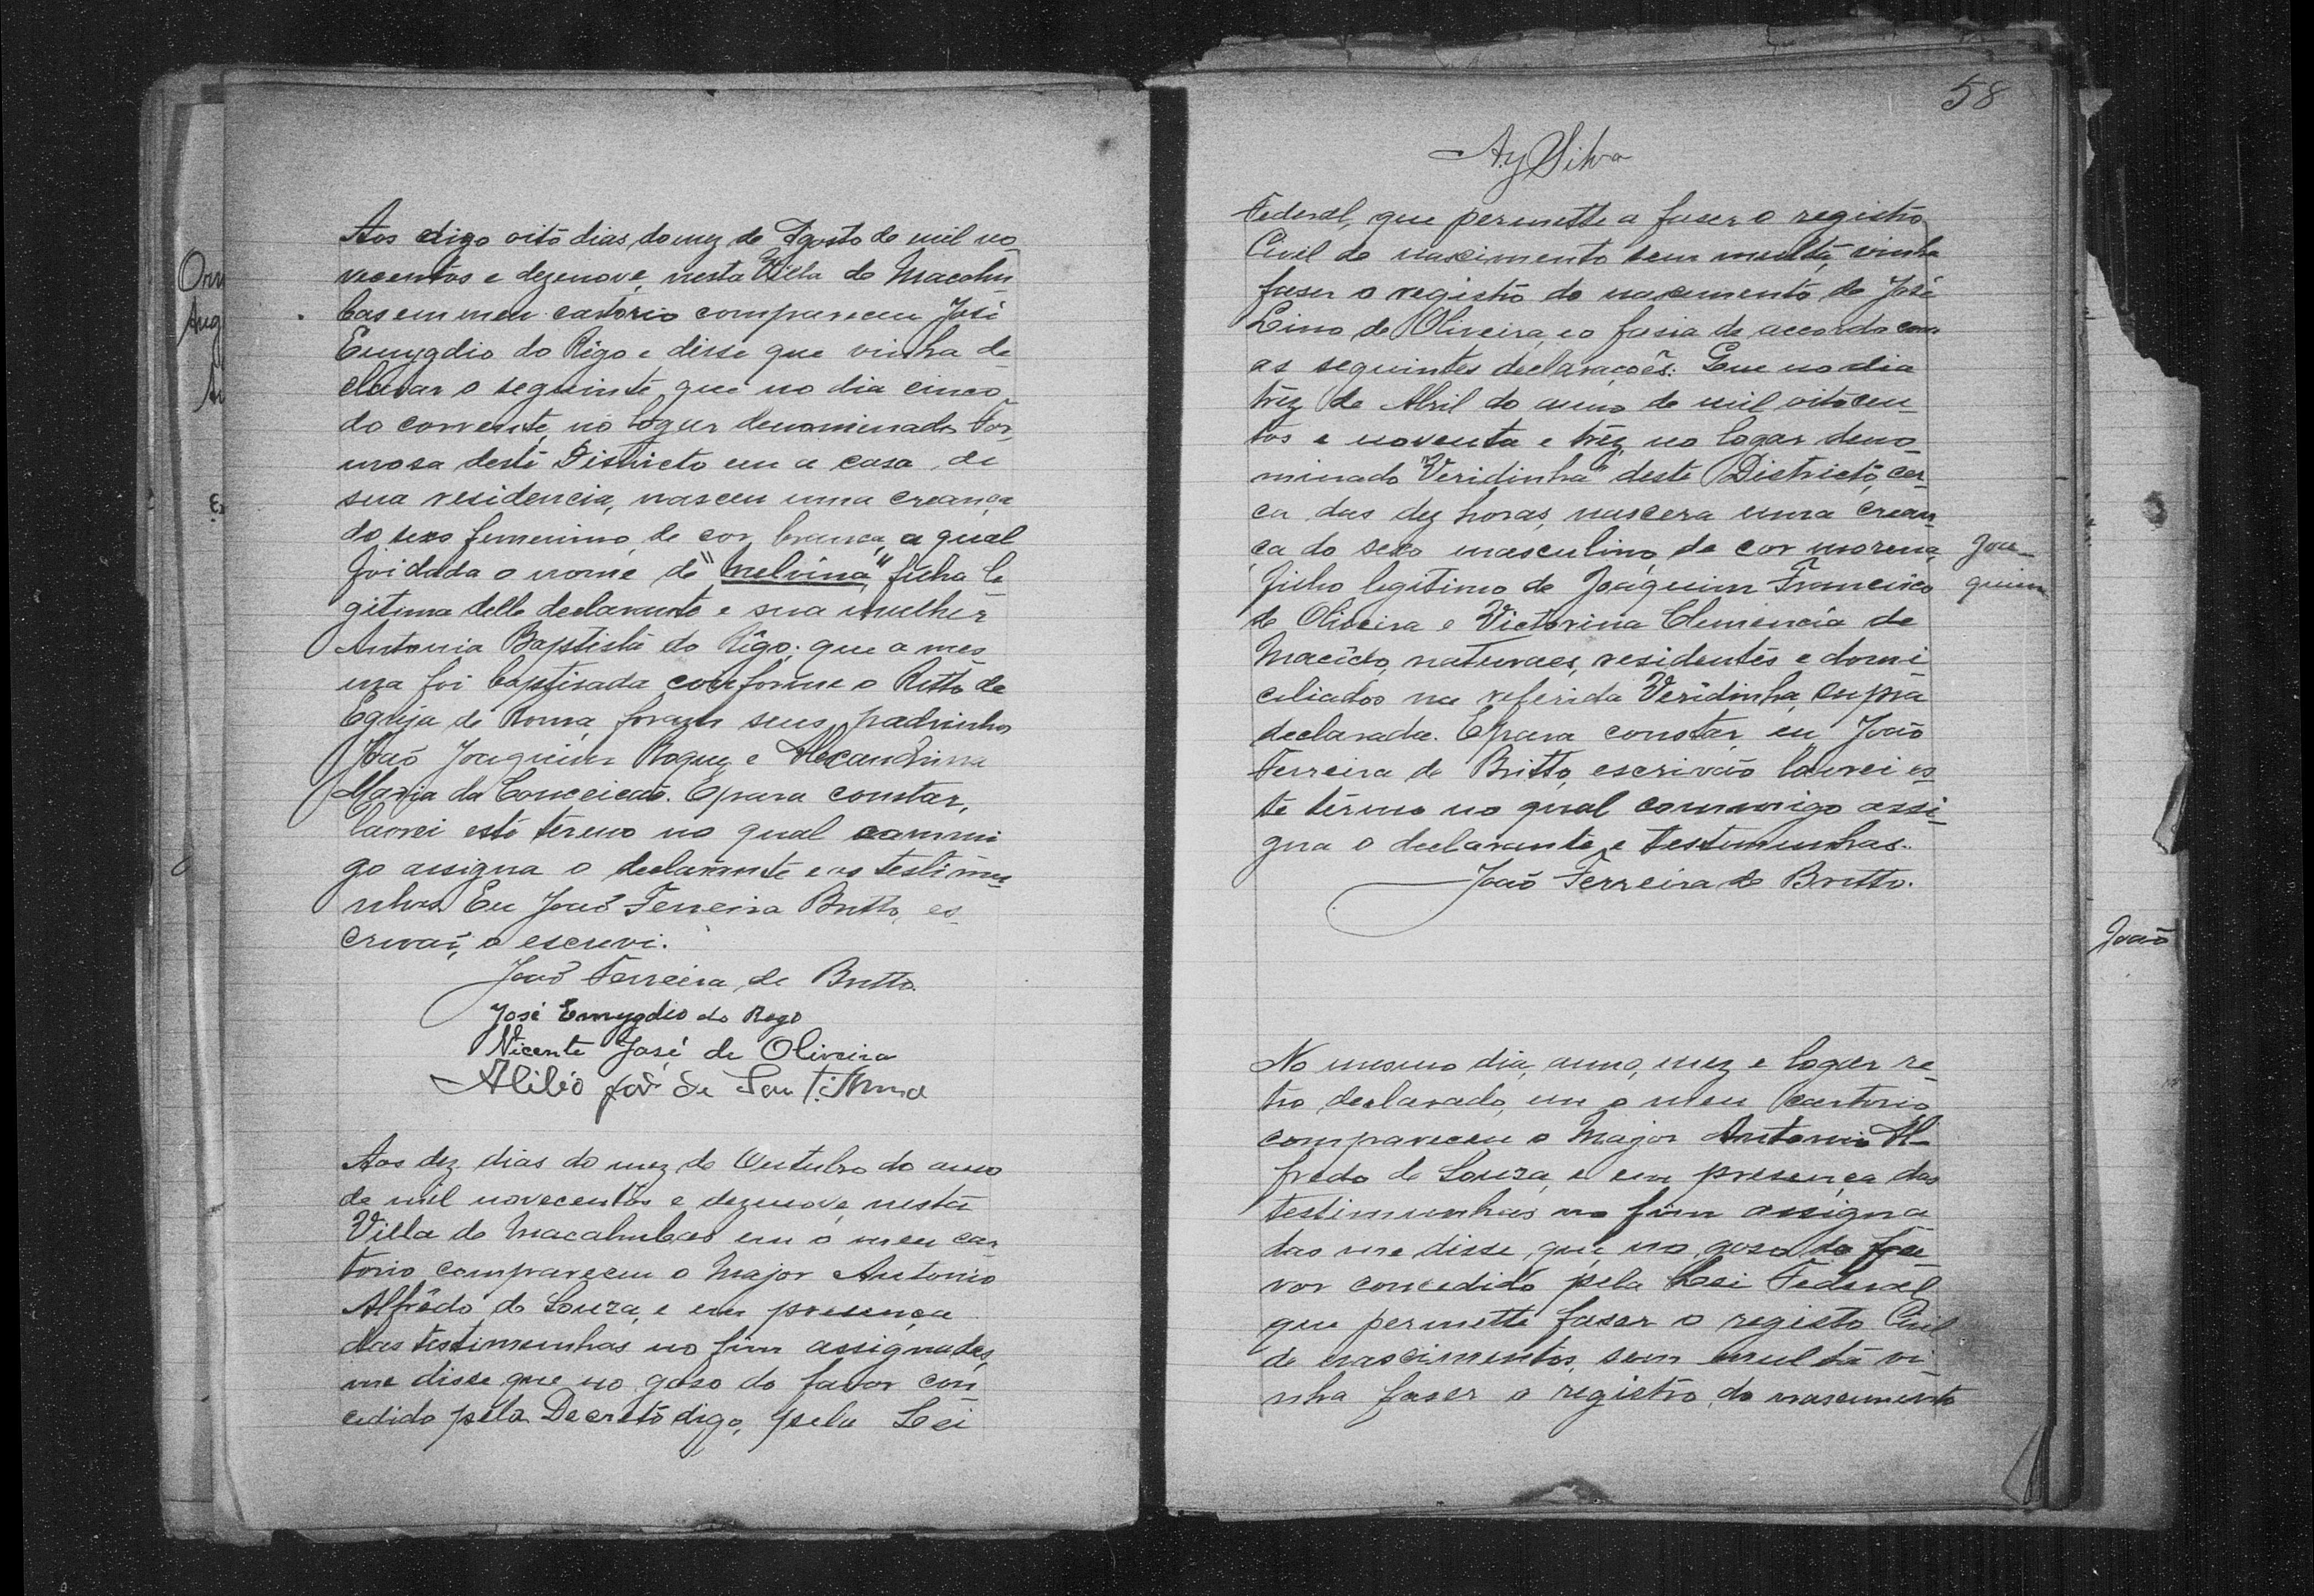 Aos digo oito dias, do mez de Agosto de mil no-
vecentos e dezenove, nesta Villa de Macahu
bas em meu cartorio compareceu José
Emygdio do Rêgo e disse que vinha de
clarar o seguinte que no dia cinco
do corrente, no logar denominado For-
mosa deste Districto em a casa de
sua residencia, nasceu uma creança
do sexo femenino, de cor branca, a qual
foi dada o nome de "Melvina", filha le
gitima delle declarante e sua mulher
Antonia Baptista do Rêgo; que a mes
ma foi baptisada conforme o Ritto da
Egreja de Roma, foram seus padrinhos
João Joaquim Roque e Alexandrina
Maria da Conceicão. E para constar,
lavrei este termo no qual commi
go assigna o declarante e as testimu
nhas. Eu João Ferreira Britto, es-
crivaõ, o escrevi.
João Ferreira de Britto.
José Emygdio do Rego
Vicente José de Oliveira
Alibio José de
Aos dez dias do mez de Outubro do anno
de mil novecentos e dezenove, nesta
Villa de Macahubas em o meu car
torio compareceu o Major Antonio
Alfrêdo de Souza, e em presença
das testimunhas no fim assignadas,
me disse que no goso do favor con
cedido pela Decreto digo, pela Lei
58
Ay Silva
Federal, que permette a faser o registro
Civil de nascimento sem multa, vinha
faser o registro do nascimento de José
Lino de Oliveira, e o fasia de accordo com
as seguintes declaraçoẽs: Que no dia
trêz de Abril do anno de mil oitocen-
tos e noventa e trêz, no logar deno-
minado "Veridinha" deste Districto, cer-
ca das dez horas, nascera uma crean-
ça do sexo masculino, de cor morena,
filho legitimo de Joaquim Francisco
de Oliveira e Victorina Clemencia de
Macêdo, naturaes, residentes e domi
ciliados na referida Veridinha, supra
declarada. E para constar, eu João
Ferreira de Britto, escrivão lavrei es-
te têrmo no qual commigo assi-
gna o declarante e testemunhas.
João Ferreira de Britto.
Joa-
quim
No mesmo dia, anno, mez e logar re-
tro declarado, em o meu cartorio
compareceu o Major Antonio Al-
fredo de Souza, e em presença das
testimunhas no fim assigna-
das me disse, que, no goso do fa-
vor concedido pela Lei Federal
que permette faser o registo Civil
de nascimentos, sem multa vi-
nha faser o registro do nascimento
João